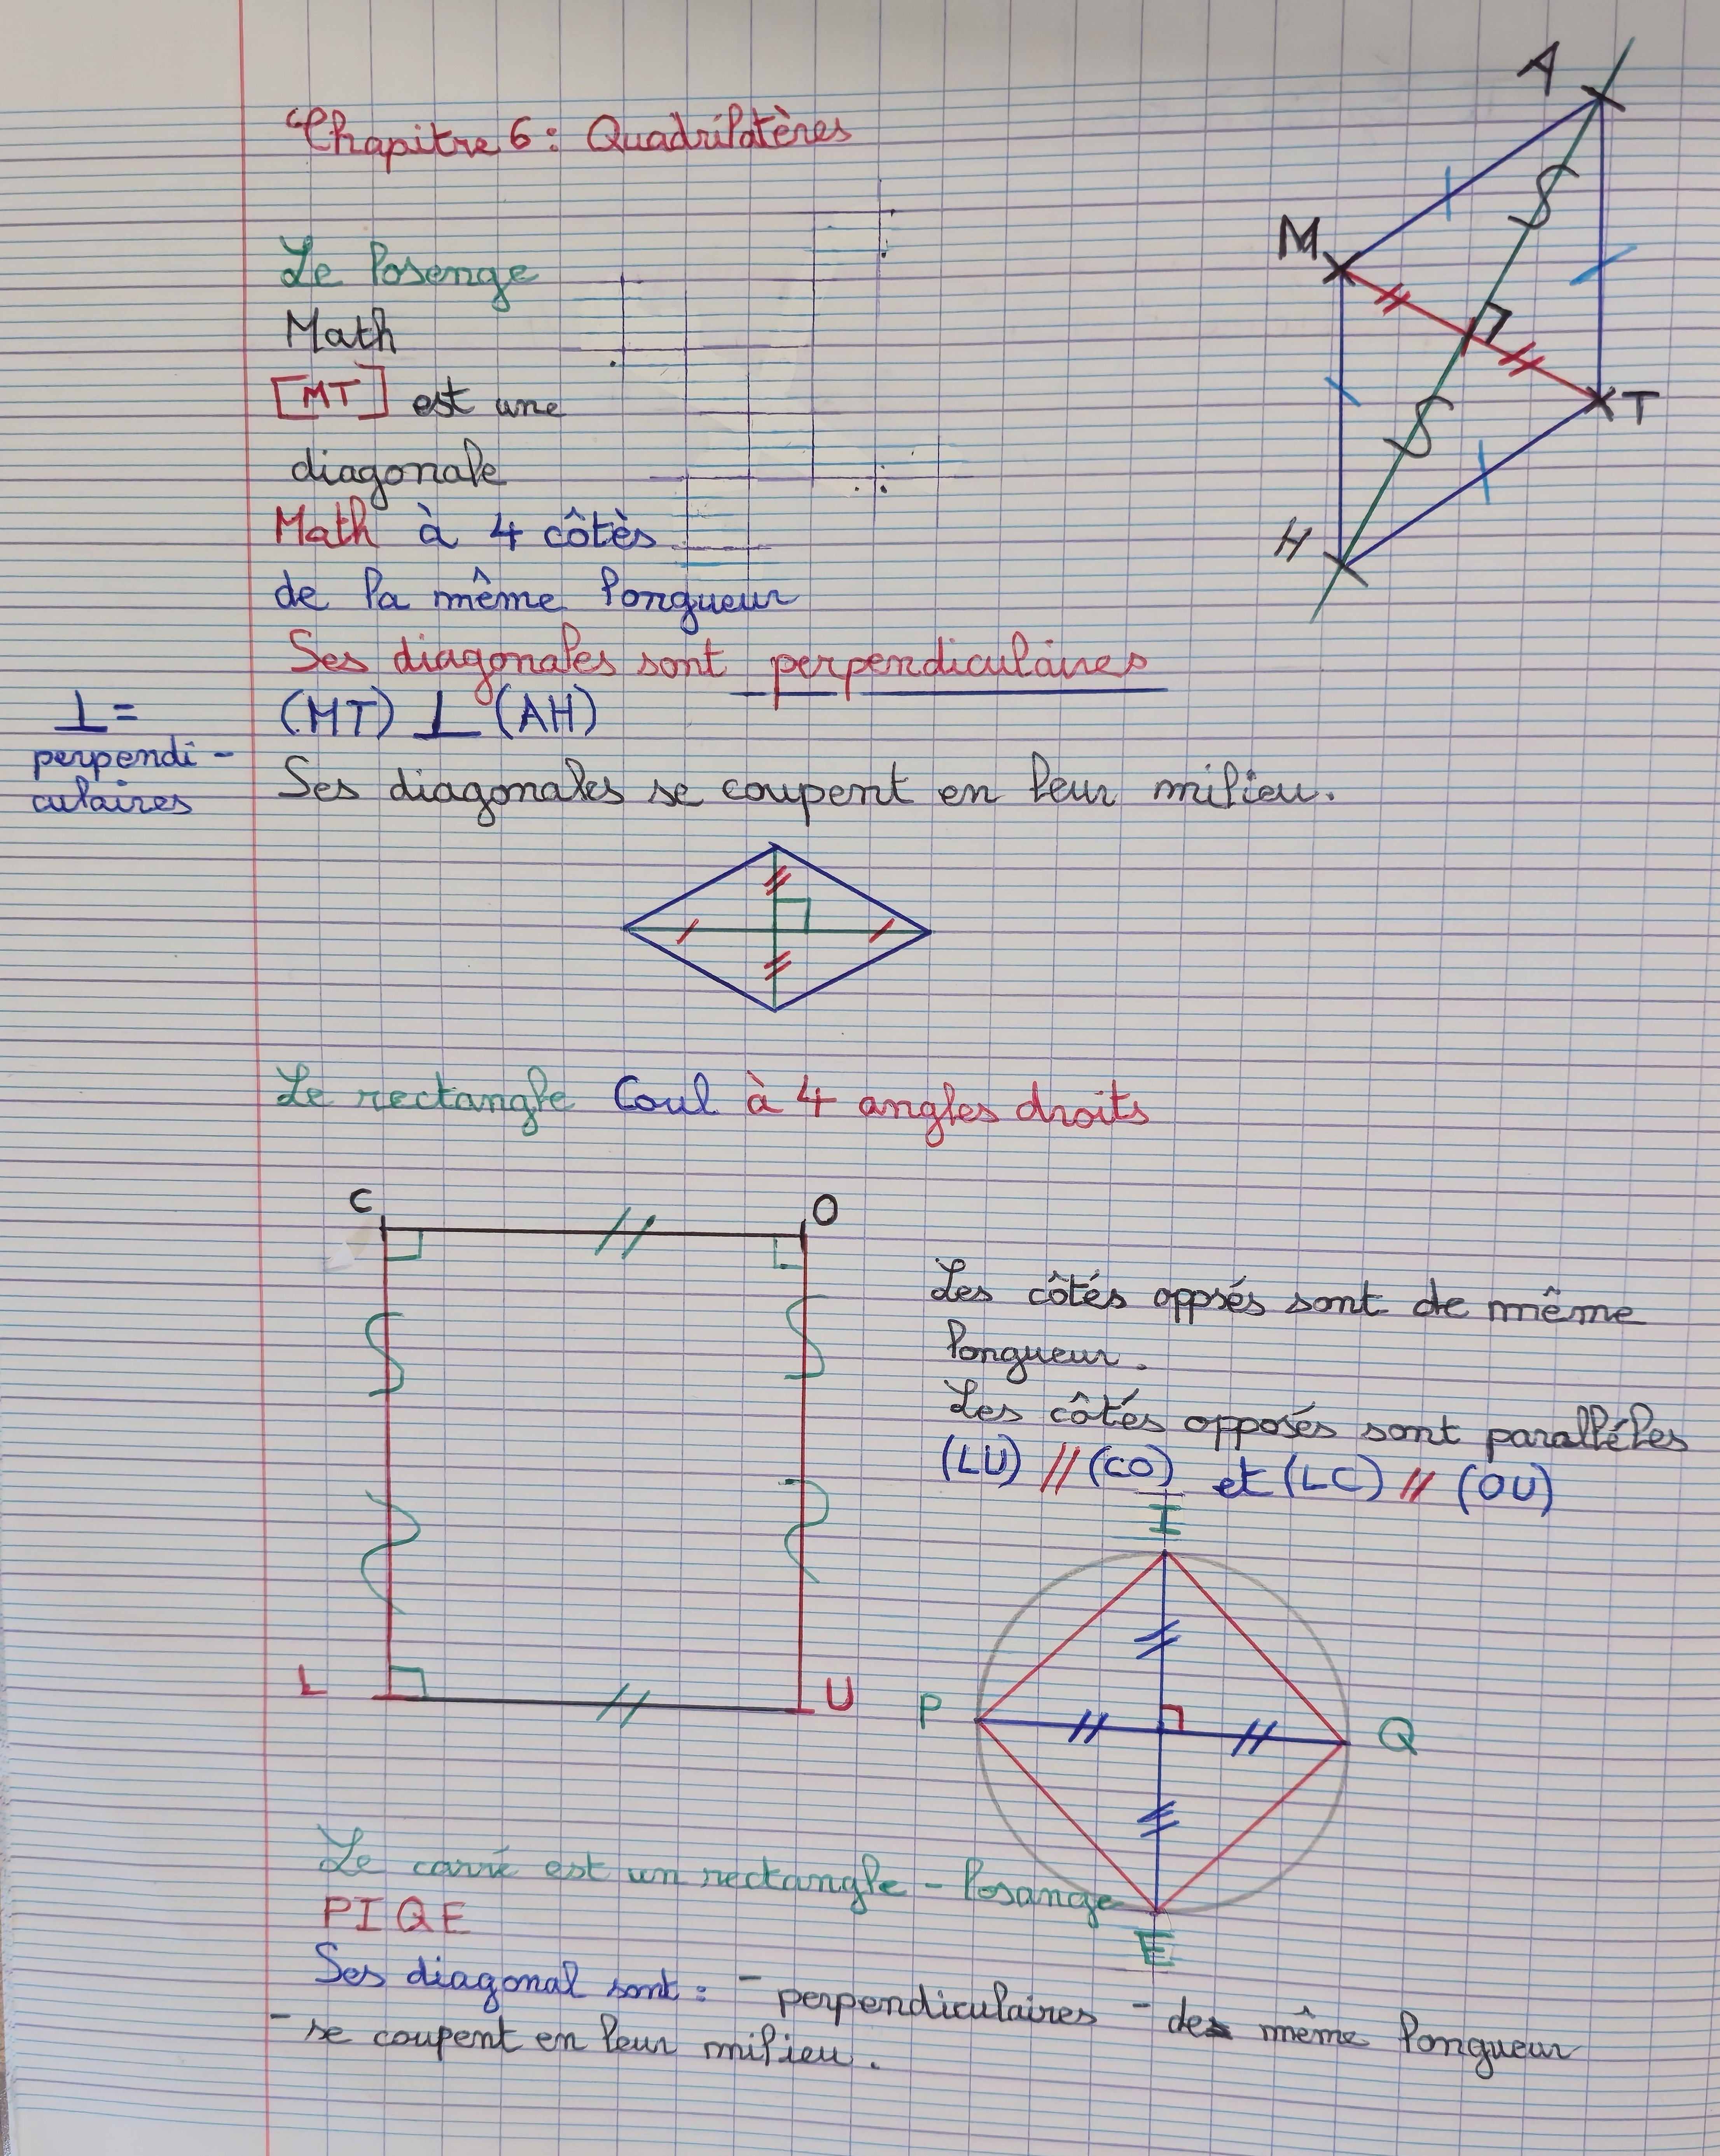 Chapitre 6 : Quadrilatères
A
Le losenge
M
Math
[MT] est une
T
diagonale
H
Math à 4 côtès
de la même longueur
Ses diagonales sont perpendiculaires
⊥ =
perpendi-
culaires
(MT) ⊥ (AH)
Ses diagonales se coupent en leur milieu.
Le rectangle Coul à 4 angles droits
C
O
Les côtés oppsés sont de même
longueur.
Les côtés opposés sont paralléles
(LU) // (CO) et (LC) // (OU)
I
L
U
P
Q
Le carré est un rectangle - losange
PIQE
E
Ses diagonal sont : - perpendiculaires - de même longueur
- se coupent en leur milieu.